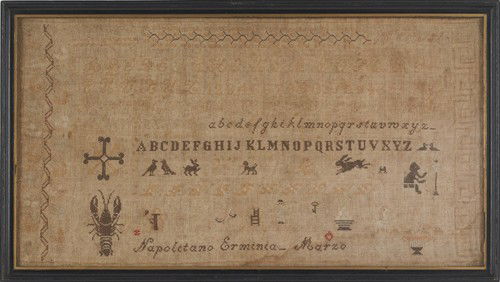 abcdefghiklmnopqrstuvwxyz
ABCDEFGHIJKLMNOPQRSTUVXYZ
Napoletano Erminia Marzo